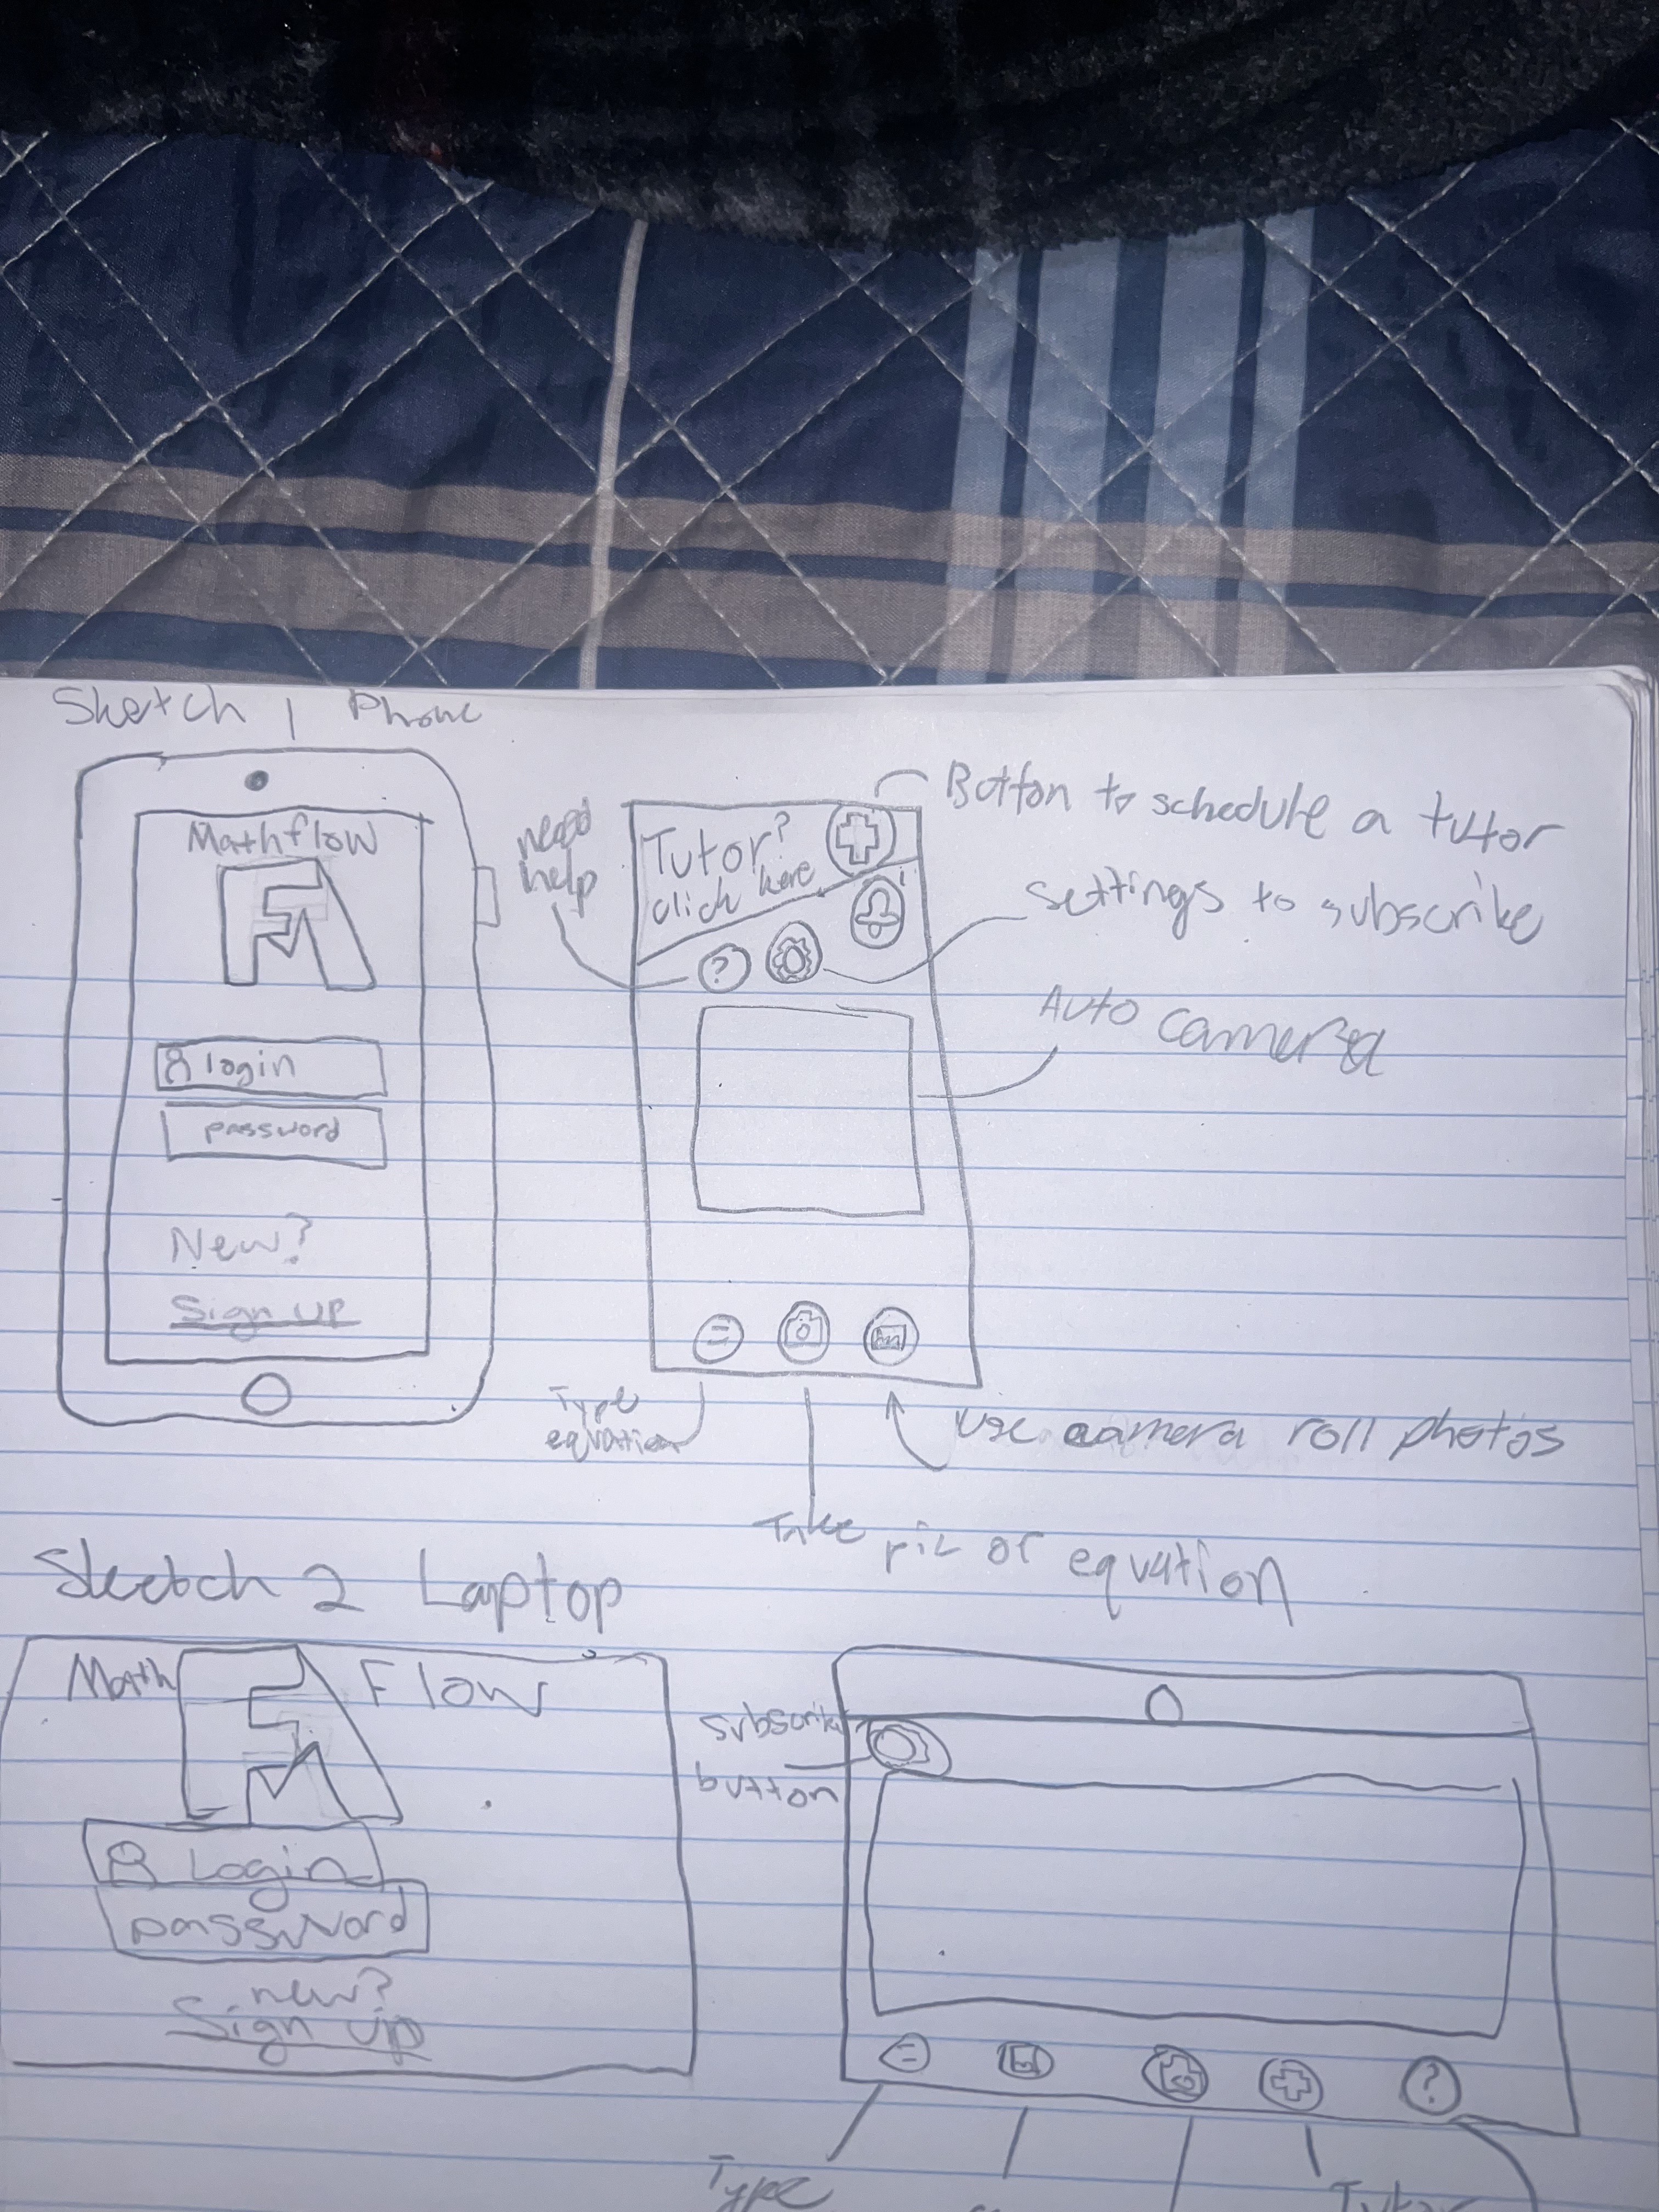 Sketch 1 Phone
Mathflow
login
password
New?
Sign up
need
help
Tutor?
click here
?
Button to schedule a tutor
settings to subscribe
Auto camera
=
Type
equation
use camera roll photos
Take pic of equation
Sketch 2 Laptop
Math Flow
Login
password
new?
Sign up
subscribe
button
=
?
Type
Tutor